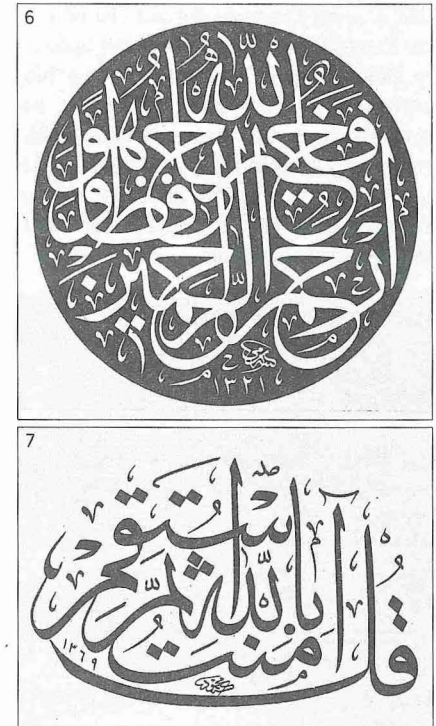 6
فالله خير حافظا وهو
ارحم الراحمين
سامي
١٣٢١
7
قل آمنت بالله ثم استقم
١٣٦٩